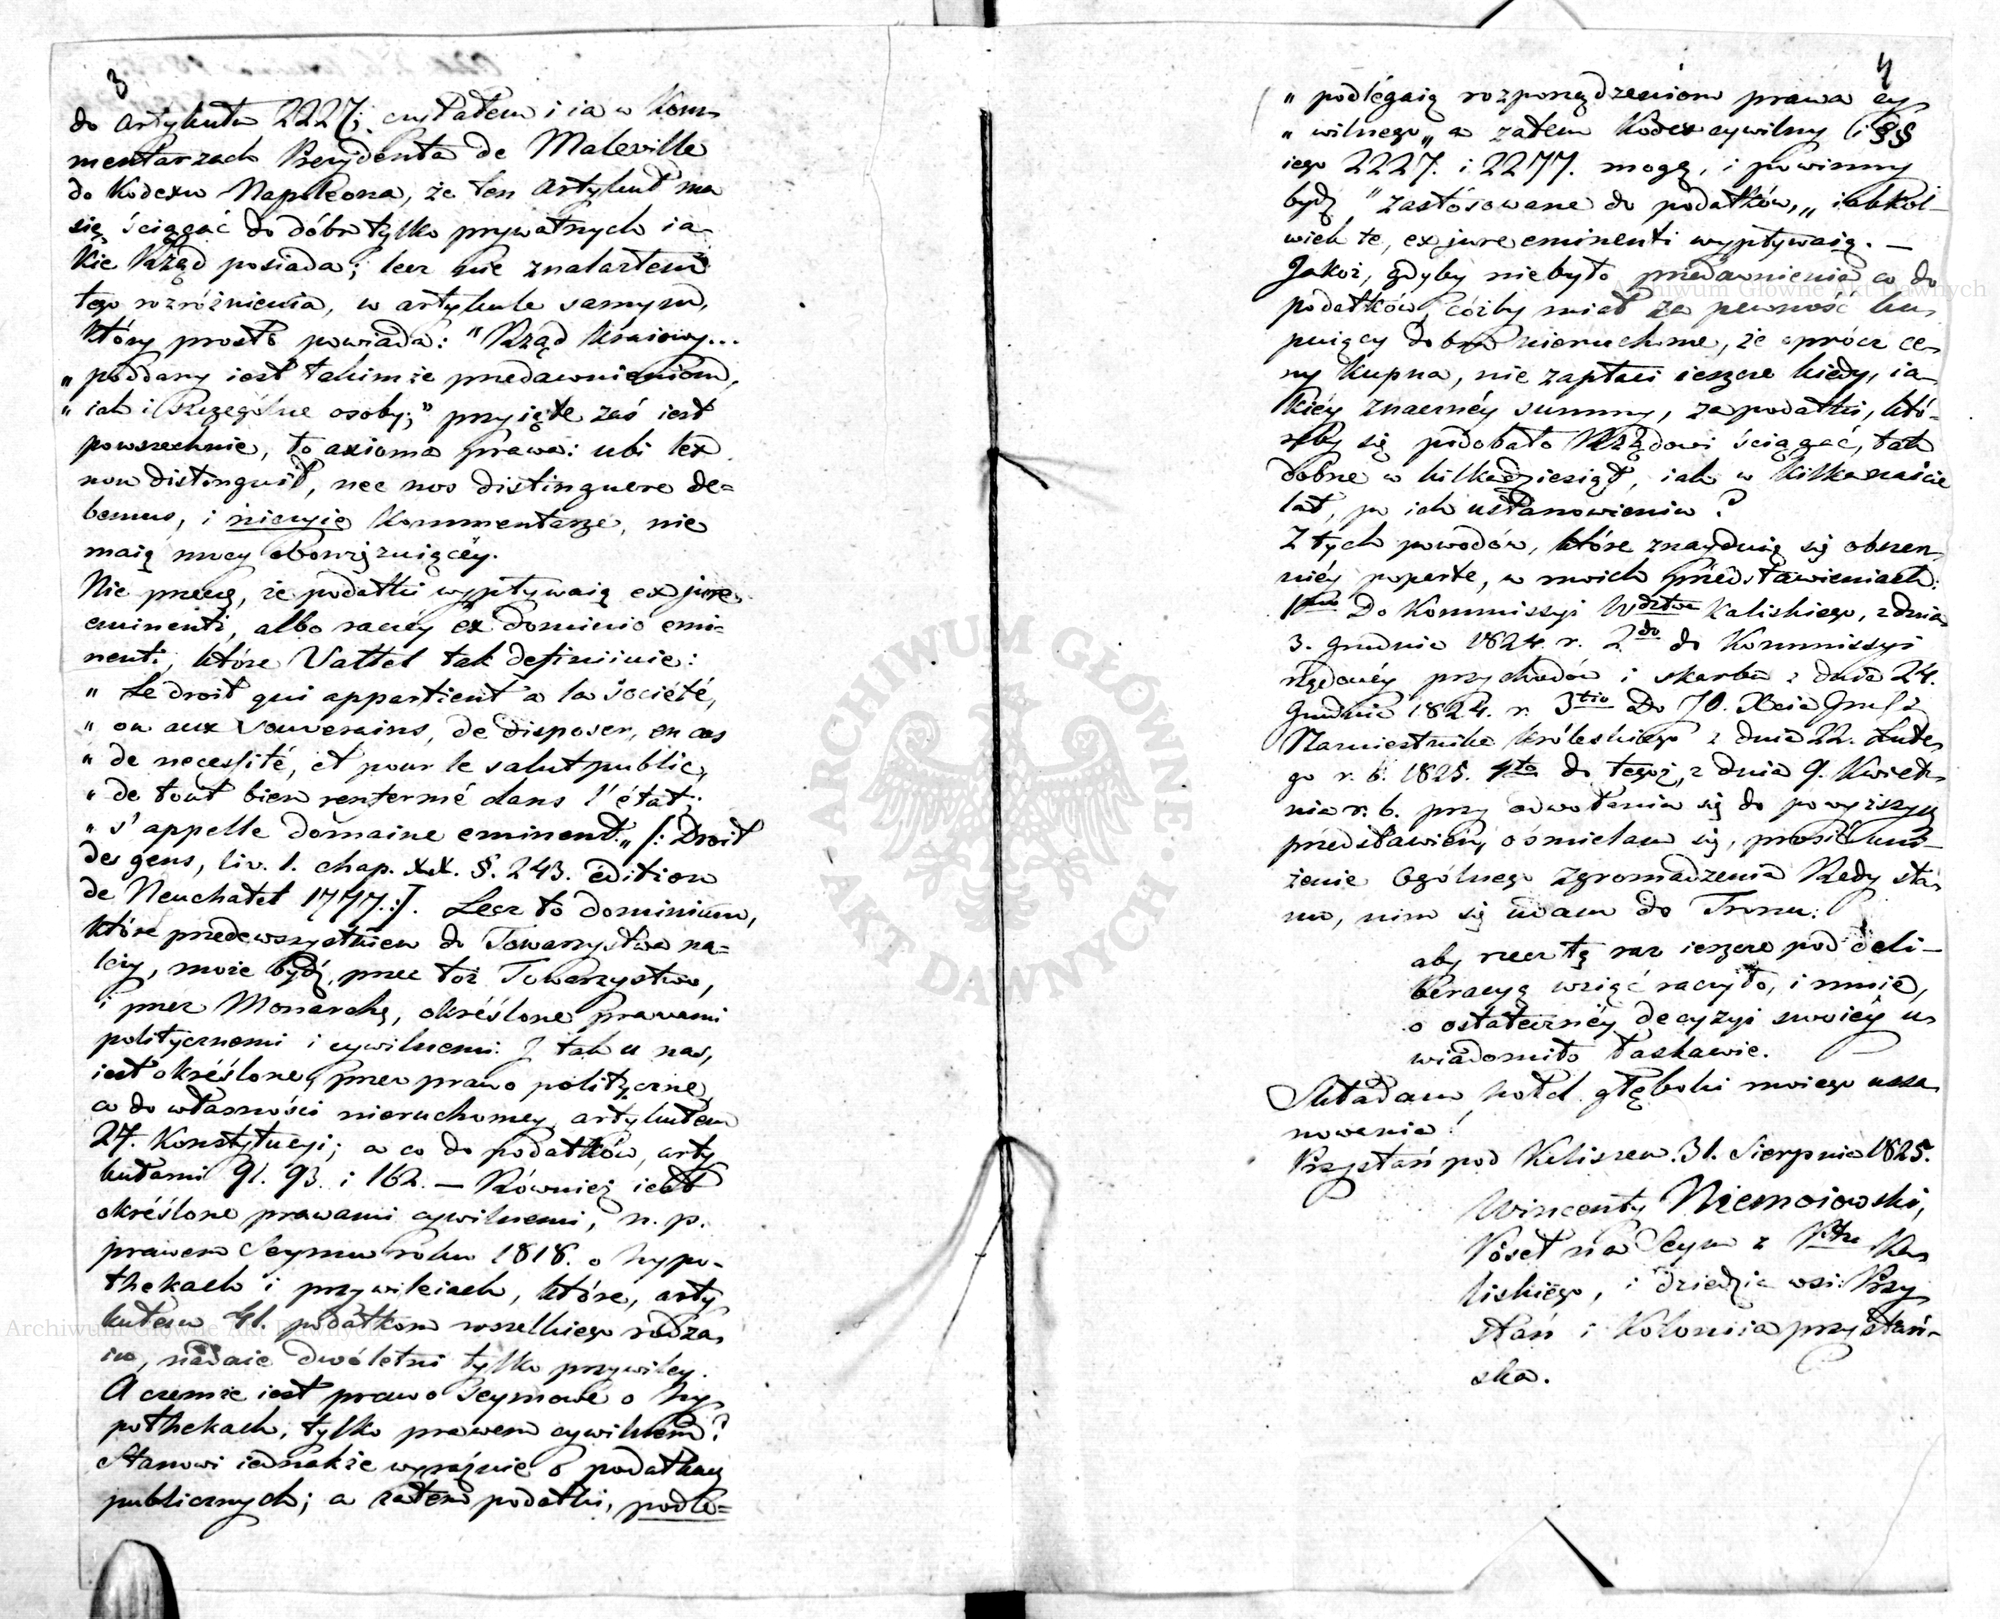 3
do artykułu 2227; czytałem i ia w kom-
mentarzach Prezydenta de Maleville
do Kodexu Napoleona, że ten artykuł ma
się ściągać do dóbr tylko prywatnych ia-
kie Rząd posiada; lecz nie znalazłem
tego rozróżnienia, w artykule samym,
który prosto powiada: "Rząd kraiowy...
" poddany iest takimże przedawnieniom,
" iak i szczególne osoby;" przyięte zaś iest
powszechnie, to axioma prawa: ubi lex
non distinguit, nec nos distinguere de=
bemus, i niczyie kommentarze, nie
maią mocy obowiązuiącéy.
Nie przeczę, że podatki wypływaią ex jure
eminenti, albo raczéy ex dominio emi-
nenti, które Vattel tak definiiuie:
" Le droit qui appartient a la société,
" ou aux souverains, de disposer, en cas
" de necessité, et pour le salut public,
" de tout bien renfermé dans l'état;
" s'appelle domaine eminent." /: Droit
des gens, liv. 1. chap. XX. §. 243. édition
de Neuchatel 1777.:/. Lecz to dominium,
które przedewszystkiem do Towarzystwa na-
leży, może bydź, przez toż Towarzystwo,
i przez Monarchę, okréślone prawami
politycznemi i cywilnemi. I tak u nas,
iest okréślone, przez prawo polityczne,
co do własności nieruchomey, artykułem
27. Konstytucyi; a co do podatków, arty-
kułami 91. 93. i 162. — Również iest
okréślone prawami cywilnemi, n. p.
prawem Seymu roku 1818. o hypo-
thekach i przywileiach, które, arty-
kułem 41. podatkom wszelkiego rodza-
iu, nadaie dwóletni tylko przywiley.
A czemże iest prawo Seymowe o hy-
pothekach, tylko prawem cywilnem?
Stanowi iednakże wyraźnie o podatkach
publicznych; a zatem podatki, podle=
4
" podlégaią rozporządzeniom prawa cy-
" wilnego" a zatem Kodex cywilny i §§
iego 2227. i 2277. mogą, i powinny
bydź, "zastósowane do podatków," iakkol-
wiek te, ex jure eminenti wypływaią. —
Jakoż, gdyby niebyło przedawnienia co do
podatków, cóżby miał za pewność ku-
puiący dobra nieruchome, że oprócz ce-
ny kupna, nie zapłaci ieszcze kiedy, ia-
kiéy znacznéy summy, za podatki, któ-
reby się podobało Rządowi ściągać, tak
dobrze w kilkadziesiąt, iak w kilkanaście
lat, po ich ustanowieniu?
Z tych powodów, które znayduią się obszer-
niéy poparte, w moich przedstawieniach:
1mo Do Kommissyi Wdztwa Kaliskiego, z dnia
3. Grudnia 1824. r. 2do do Kommissyi
rządowéy przychodów i skarbu z dnia 24.
Grudnia 1824. r. 3tio Do JO. Xcia
Namiestnika królewskiego z dnia 22. Lute-
go r. b. 1825. 4to do tegoż, z dnia 9. Kwiet-
nia r. b. przy odwołaniu się do powyższych
przedstawień, ośmielam się, prosić uni-
żenie Ogólnego Zgromadzenia Rady sta-
nu, nim się udam do Tronu:
aby rzecz tę raz ieszcze pod deli-
beracyą wziąć raczyło, i mnie,
o ostatecznéy decyzyi swoiéy u-
wiadomiło łaskawie.
Składam hołd głęboki moiego usza-
nowania!
Przystań pod Kaliszem. 31. Sierpnia 1825.
Wincenty Niemoiowski,
Poseł na Seym z Ptu Ka-
liskiégo, i dziedzic wsi Przy-
stań i Kolonia przystań-
ska.
ARCHIWUM GŁÓWNE · AKT DAWNYCH ·
Archiwum Główne Akt Dawnych
Archiwum Główne Akt Dawnych